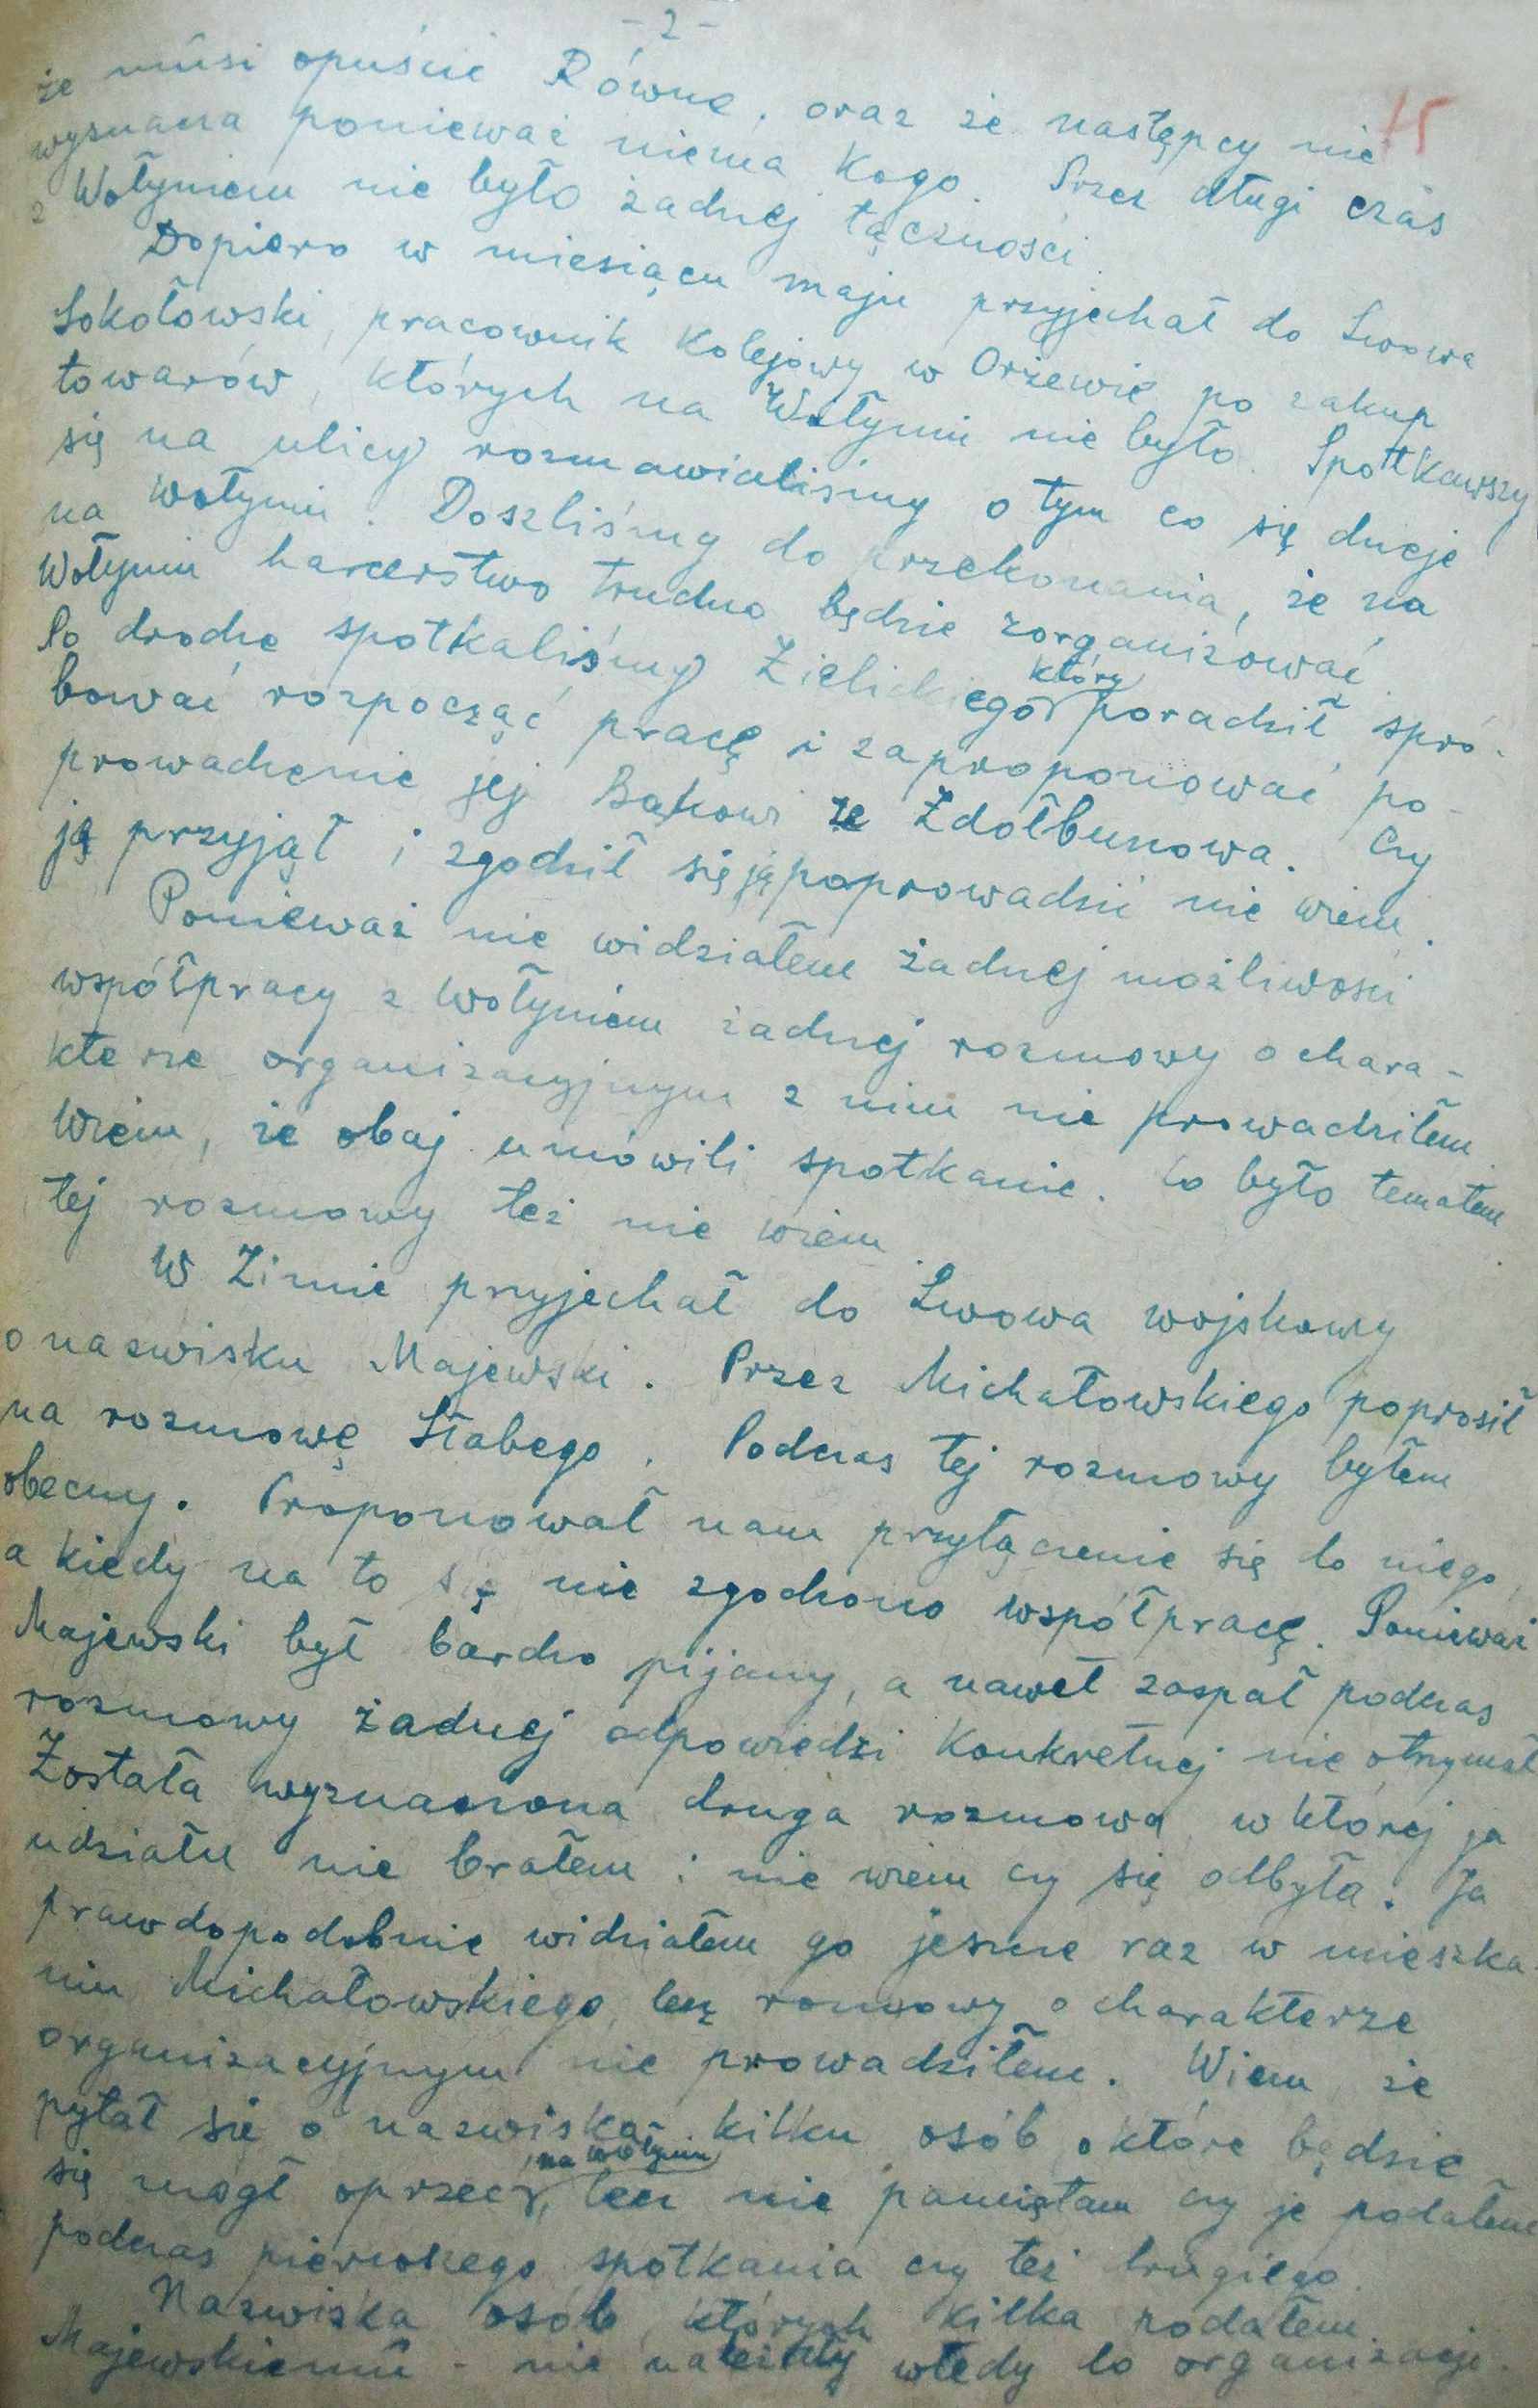 - 2 -
15
że musi opuścić Równe, oraz że następcy nie
wyznacza ponieważ niema kogo. Przez długi czas
z Wołyniem nie było żadnej łączności.
Dopiero w miesiącu maju przyjechał do Lwowa
Sokołowski, pracownik kolejowy w Orżewie po zakup
towarów, których na Wołyniu nie było. Spotkawszy
się na ulicy rozmawialiśmy o tym co się dzieje
na Wołyniu. Doszliśmy do przekonania, że na
Wołyniu harcerstwo trudno będzie zorganizować.
Po drodze spotkaliśmy Zielickiego, który poradził spró-
bować rozpocząć pracę i zaproponować po-
prowadzenie jej Bąkowi ze Zdołbunowa. Czy
ją przyjął i zgodził się ją poprowadzić nie wiem.
Ponieważ nie widziałem żadnej możliwości
współpracy z Wołyniem żadnej rozmowy o chara-
kterze organizacyjnym z nim nie prowadziłem.
Wiem, że obaj umówili spotkanie. Co było tematem
tej rozmowy też nie wiem.
W Zimie przyjechał do Lwowa wojskowy
o nazwisku Majewski. Przez Michałowskiego poprosił
na rozmowę Słabego. Podczas tej rozmowy byłem
obecny. Proponował nam przyłączenie się do niego,
a kiedy na to się nie zgodzono współpracę. Ponieważ
Majewski był bardzo pijany, a nawet zaspał podczas
rozmowy żadnej odpowiedzi konkretnej nie otrzymał
Została wyznaczona druga rozmowa w której ja
udziału nie brałem i nie wiem czy się odbyła. Ja
prawdopodobnie widziałem go jeszcze raz w mieszka-
niu Michałowskiego, lecz rozmowy o charakterze
organizacyjnym nie prowadziłem. Wiem, że
pytał się o nazwiska kilku osób o które będzie
się mógł oprzeć na Wołyniu, lecz nie pamiętam czy je podałem
podczas pierwszego spotkania czy też drugiego.
Nazwiska osób, których kilka podałem
Majewskiemu - nie należały wtedy do organizacji.